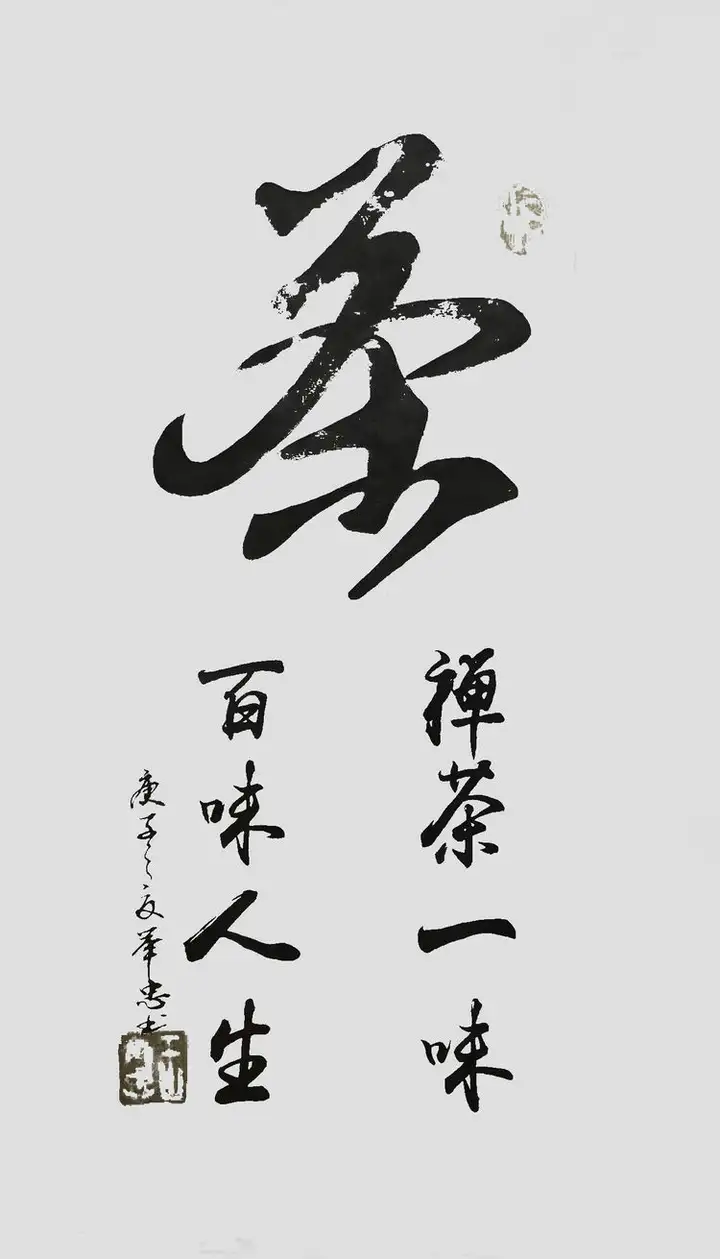 茶
禅茶一味
百味人生
庚子之夏华忠书